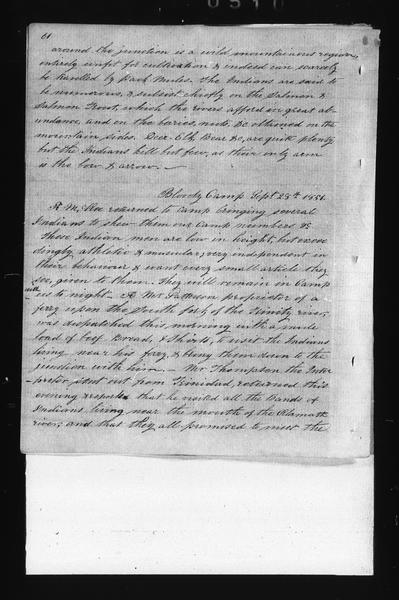 61
around the junction is a wild mountainous region,
entirely unfit for cultivation & indeed can scarcely
be travelled by pack mules. The Indians are said to
be numerous, & subsist chiefly on the Salmon &
Salmon Trout, which the rivers afford in great ab-
undance, and on the berries, nuts, &c obtained on the
mountain sides. Deer, Elk, Bear &c, are quite plenty
but the Indians kill but few, as their only arm
is the bow & arrow.
Bloody Camp Sept 28th 1851.
R. McKee returned to camp bringing several
Indians to shew them our camp members &c
These Indian men are low in height, but excee
dingly athletic & muscular, very independent in
their behaviour & want every small article they
see, given to them. They will remain in Camp
with
us to night. Mr Patterson proprietor of a
ferry upon the South fork of the Trinity river,
was dispatched this morning with a mule
load of beef, Bread, & Shirts, to visit the Indians
living near his ferry, & bring them down to the
junction with him. Mr Thompson the Inter
preter, sent out from Trinidad, returned this
evening & reports that he visited all the Bands of
Indians living near the mouth of the Klamath
river, and that they all promised to meet the